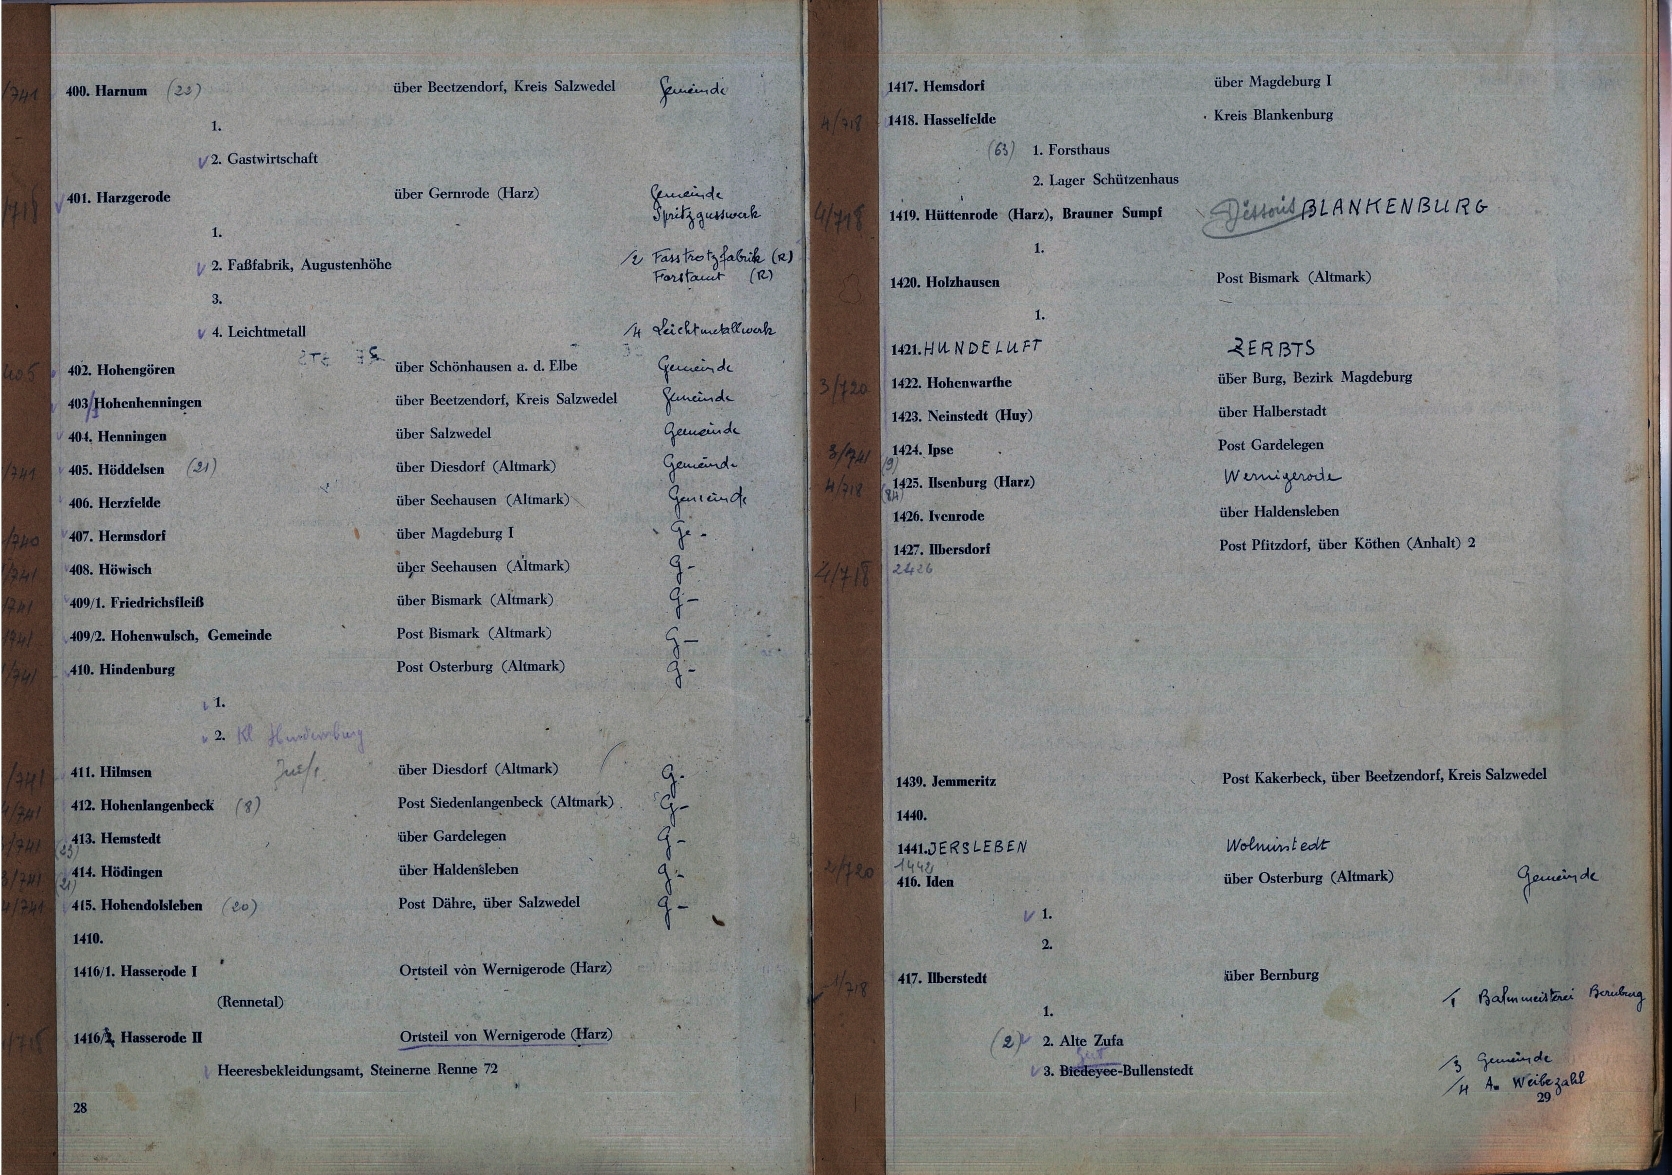 /741 400. Harnum (22) über Beetzendorf, Kreis Salzwedel Gemeinde
1.
2. Gastwirtschaft
/718 401. Harzgerode über Gernrode (Harz) Gemeinde
Spritzgusswerk
1.
2. Faßfabrik, Augustenhöhe /2 Fasstrotzfabrik (R)
Forstamt (R)
3.
4. Leichtmetall /4 Leichtmetallwerk
402. Hohengören über Schönhausen a. d. Elbe Gemeinde
403 Hohenhenningen über Beetzendorf, Kreis Salzwedel Gemeinde
404. Henningen über Salzwedel Gemeinde
/741 405. Höddelsen (21) über Diesdorf (Altmark) Gemeinde
406. Herzfelde über Seehausen (Altmark) Gemeinde
/740 407. Hermsdorf über Magdeburg I Ge -
/741 408. Höwisch über Seehausen (Altmark) G -
/741 409/1. Friedrichsfleiß über Bismark (Altmark) G -
/741 409/2. Hohenwulsch, Gemeinde Post Bismark (Altmark) G -
/741 410. Hindenburg Post Osterburg (Altmark) G -
1.
2. Kl
/741 411. Hilmsen über Diesdorf (Altmark) G -
/741 412. Hohenlangenbeck (8) Post Siedenlangenbeck (Altmark) G -
/741 413. Hemstedt über Gardelegen G -
(23)
3/741 414. Hödingen über Haldensleben G -
(21)
/741 415. Hohendolsleben (20) Post Dähre, über Salzwedel G -
1410.
1416/1. Hasserode I Ortsteil von Wernigerode (Harz)
(Rennetal)
/718 1416/2. Hasserode II Ortsteil von Wernigerode (Harz)
Heeresbekleidungsamt, Steinerne Renne 72
28
1417. Hemsdorf über Magdeburg I
4/718 1418. Hasselfelde Kreis Blankenburg
(63) 1. Forsthaus
2. Lager Schützenhaus
4/718 1419. Hüttenrode (Harz), Brauner Sumpf BLANKENBURG
1.
1420. Holzhausen Post Bismark (Altmark)
1.
1421. HUNDELUFT ZERBTS
3/720 1422. Hohenwarthe über Burg, Bezirk Magdeburg
1423. Neinstedt (Huy) über Halberstadt
3/741 1424. Ipse Post Gardelegen
(9)
4/718 1425. Ilsenburg (Harz) Wernigerode
(84)
1426. Ivenrode über Haldensleben
1427. Ilbersdorf Post Pfitzdorf, über Köthen (Anhalt) 2
4/718 2426
1439. Jemmeritz Post Kakerbeck, über Beetzendorf, Kreis Salzwedel
1440.
1441. JERSLEBEN Wolmirstedt
2/720 1442
416. Iden über Osterburg (Altmark) Gemeinde
1.
2.
1/718 417. Ilberstedt über Bernburg
/1 Bahnmeisterei Bernburg
1.
(2) 2. Alte Zufa
3. Biedeyee-Bullenstedt /3 Gemeinde
/4 A. Weibezahl
29